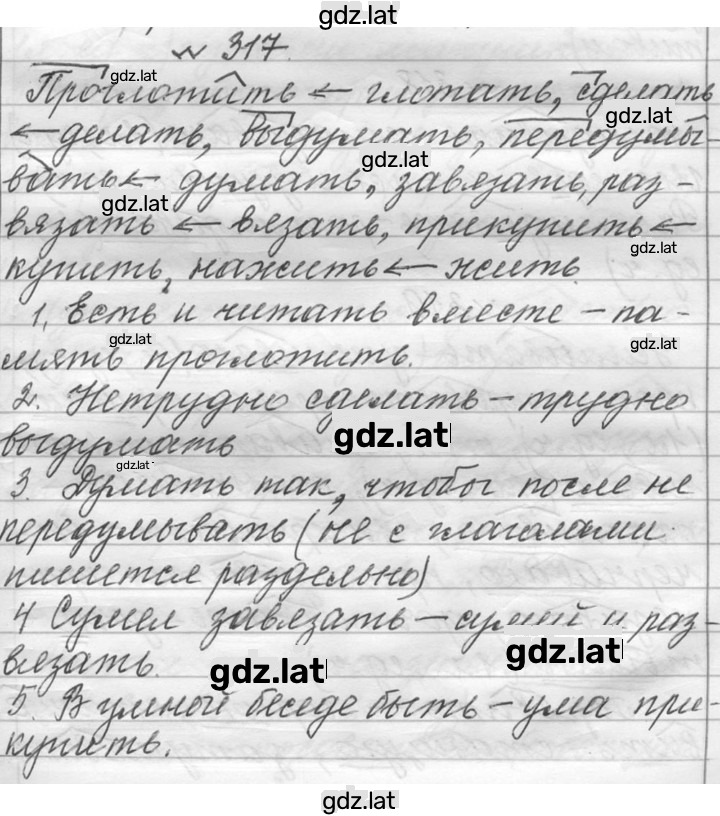 gdz.lat
№ 317.
Проглотить ← глотать, сделать
gdz.lat
gdz.lat
← делать, выдумать, передумы-
gdz.lat
вать ← думать, завязать, раз-
gdz.lat
вязать ← вязать, прикупить ←
gdz.lat
купить, нажить ← жить.
1. Есть и читать вместе – па-
gdz.lat
gdz.lat
мять проглотить.
2. Нетрудно сделать – трудно
выдумать
gdz.lat
gdz.lat
3. Думать так, чтобы после не
передумывать (не с глаголами
пишется раздельно)
4 Сумел завязать – сумей и раз-
gdz.lat
вязать.
gdz.lat
5. В умной беседе быть – ума при-
купить.
gdz.lat